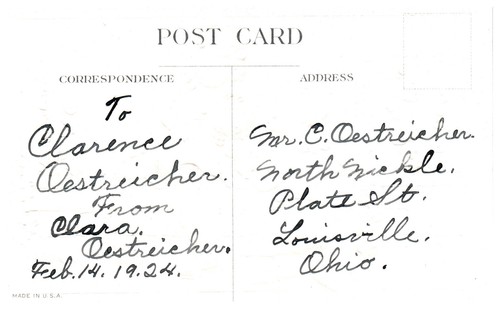 POST CARD
CORRESPONDENCE
To
Clarence
Oestreicher.
From
Clara.
Oestreicher.
Feb. 14. 1924.
MADE IN U.S.A.
ADDRESS
Mr. C. Oestreicher.
North Nickle.
Plate St.
Louisville.
Ohio.